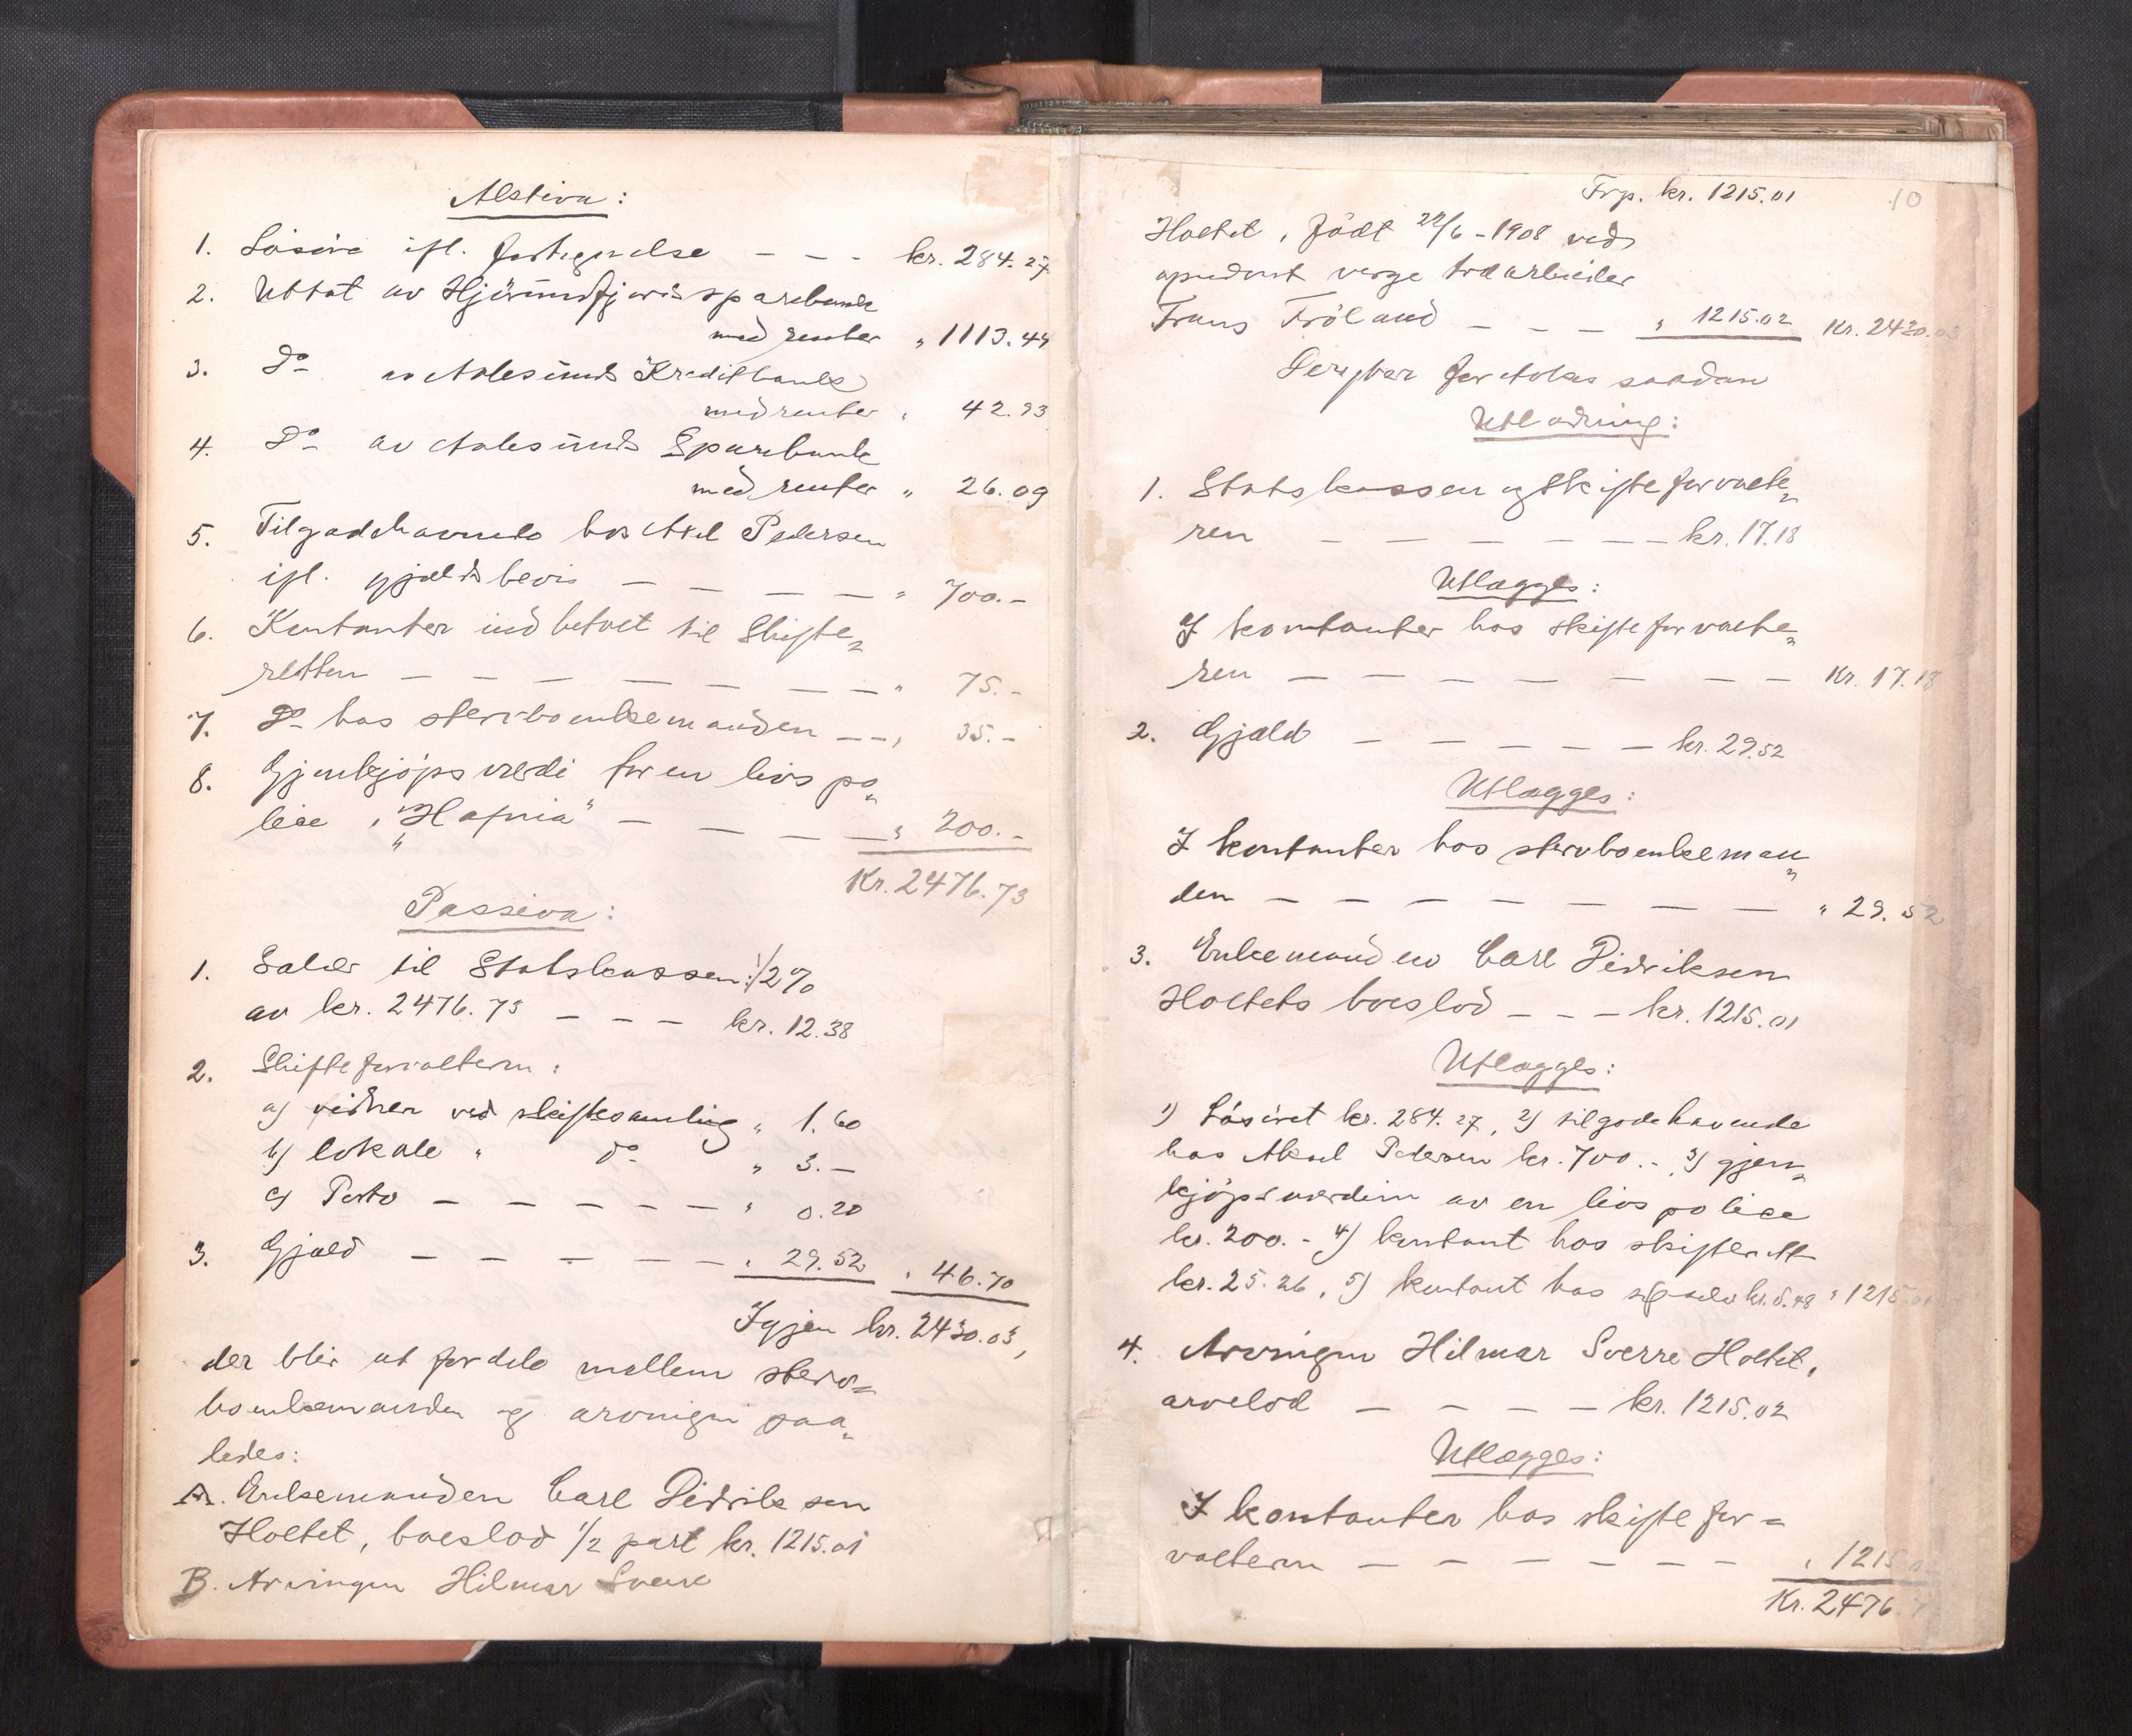 Aktiva:
1. Løsøre ifl. fortegnelse - - - kr. 284.27
2. Uttat av Hjørundfjord sparebank
med renter " 1113.44
3. Do av Aalesunds Kreditbank
med renter " 42.93
4. Do av Aalesunds Sparebank
med renter " 26.09
5. Tilgodehavende hos Axel Pedersen
ifl. gjældsbevis - - - - " 700.-
6. Kontanter indbetalt til Skifte=
retten - - - - - - - " 75.-
7. Do hos stervboenkemanden - - " 35.-
8. Gjenkjøpsværdi for en livspo=
lice i "Hafnia" - - - - " 200.-
Kr. 2476.73
Passiva:
1. Salær til Statskassen: 1/2 %
av kr. 2476.73 - - - kr. 12.38
2. Skifteforvalteren:
a) vidner ved skiftesamling " 1.60
b) lokale " do " 3.-
c) Porto - - - - - " 0.20
3. Gjæld - - - - - " 29.52 " 46.70
Igjen kr. 2430.03,
der blir at fordele mellem sterv=
boenkemanden og arvingen saa=
ledes:
A. Enkemanden Carl Didriksen
Holtet, boeslod 1/2 part kr. 1215.01
B. Arvingen Hilmar Sverre
10
Trp. kr. 1215.01
Holtet, født 22/6-1908 ved
opnævnt verge træarbeider
Frans Frøland - - - " 1215.02 Kr. 2430.03
Derpaa foretokes saadan
Utlodning:
1. Statskassen og Skifteforvalte=
ren - - - - - - kr. 17.18
Utlægges:
I kontanter hos skifteforvalte=
ren - - - - - - - Kr. 17.18
2. Gjæld - - - - - kr. 29.52
Utlægges:
I kontanter hos stervboenkeman=
den - - - - - - - - " 29.52
3. Enkemanden Carl Didriksen
Holtets boeslod - - - kr. 1215.01
Utlægges:
1) Løsøret kr. 284.27, 2) tilgodehavende
hos Aksel Pedersen kr. 700.-, 3) gjen=
kjøpsværdien av en livspolice
kr. 200.- 4) kontant hos skifterett
kr. 25.26, 5) kontant hos sig selv kr. 5.48 " 1215.01
4. Arvingen Hilmar Sverre Holtet,
arvelod - - - - kr. 1215.02
Utlægges:
I kontanter hos skiftefor=
valteren - - - - - - " 1215.02
Kr. 2476.73